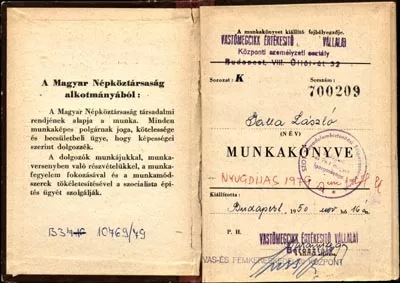 A Magyar Népköztársaság
alkotmányából:
A Magyar Népköztársaság társadalmi
rendjének alapja a munka. Minden
munkaképes polgárnak joga, kötelessége
és becsületbeli ügye, hogy képességei
szerint dolgozzék.
A dolgozók munkájukkal, munka-
versenyben való részvételükkel, a munka-
fegyelem fokozásával és a munkamód-
szerek tökéletesítésével a szocialista épí-
tés ügyét szolgálják.
10769/49
A munkakönyvet kiállító fejbélyegzője.
VASTÖMEGCIKK ÉRTÉKESITŐ VÁLLALAT
Központi személyzeti osztály
Budapest, VIII. Üllői-út 32
Sorozat: K
Sorszám:
700209
Balla László
(NÉV)
MUNKAKÖNYVE
NYUGDIJAS 1979
Kiállította:
Budapest, 1950 nov. hó 16 án
P. H.
VASTÖMEGCIKK ÉRTÉKESITŐ VÁLLALAT
VAS-ÉS FÉMKERESKEDELMI KÖZPONT